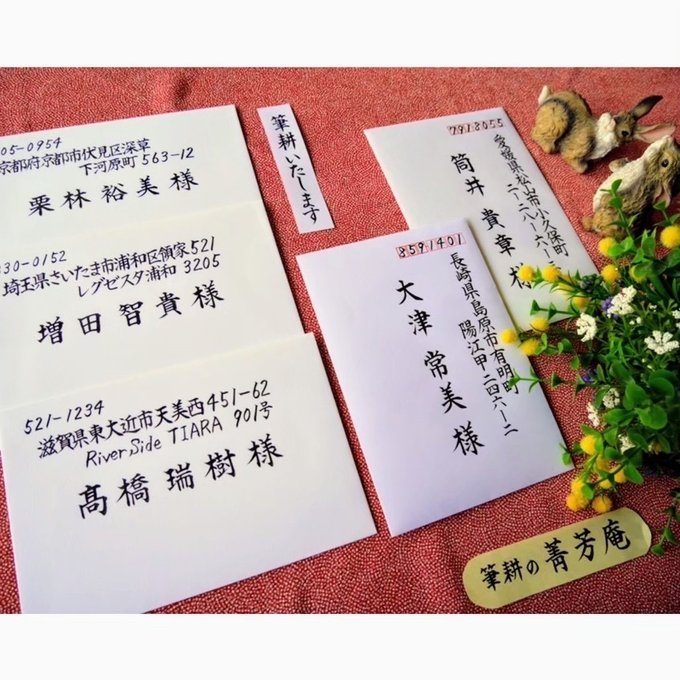 05-0954
京都府京都市伏見区深草
下河原町563-12
栗林裕美様
330-0152
埼玉県さいたま市浦和区領家521
レグゼスタ浦和 3205
増田智貴様
521-1234
滋賀県東大近市天美西451-62
River Side TIARA 901号
髙橋瑞樹様
筆耕いたします
7918055
愛媛県松山市小久保町
二-二八-一六-
筒井貴章様
8591401
長崎県島原市有明町
陽江甲二四六-二
大津常美様
筆耕の菁芳庵